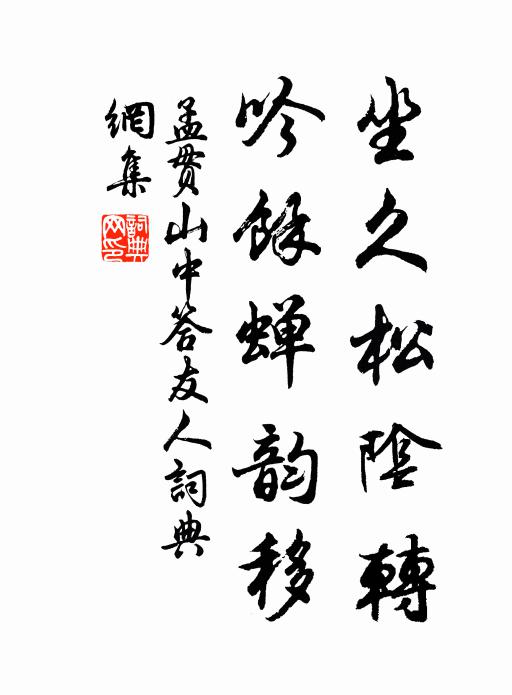 坐久松陰轉
吟餘蟬韵移
孟貫山中答友人詞典
網集
詞典
网印